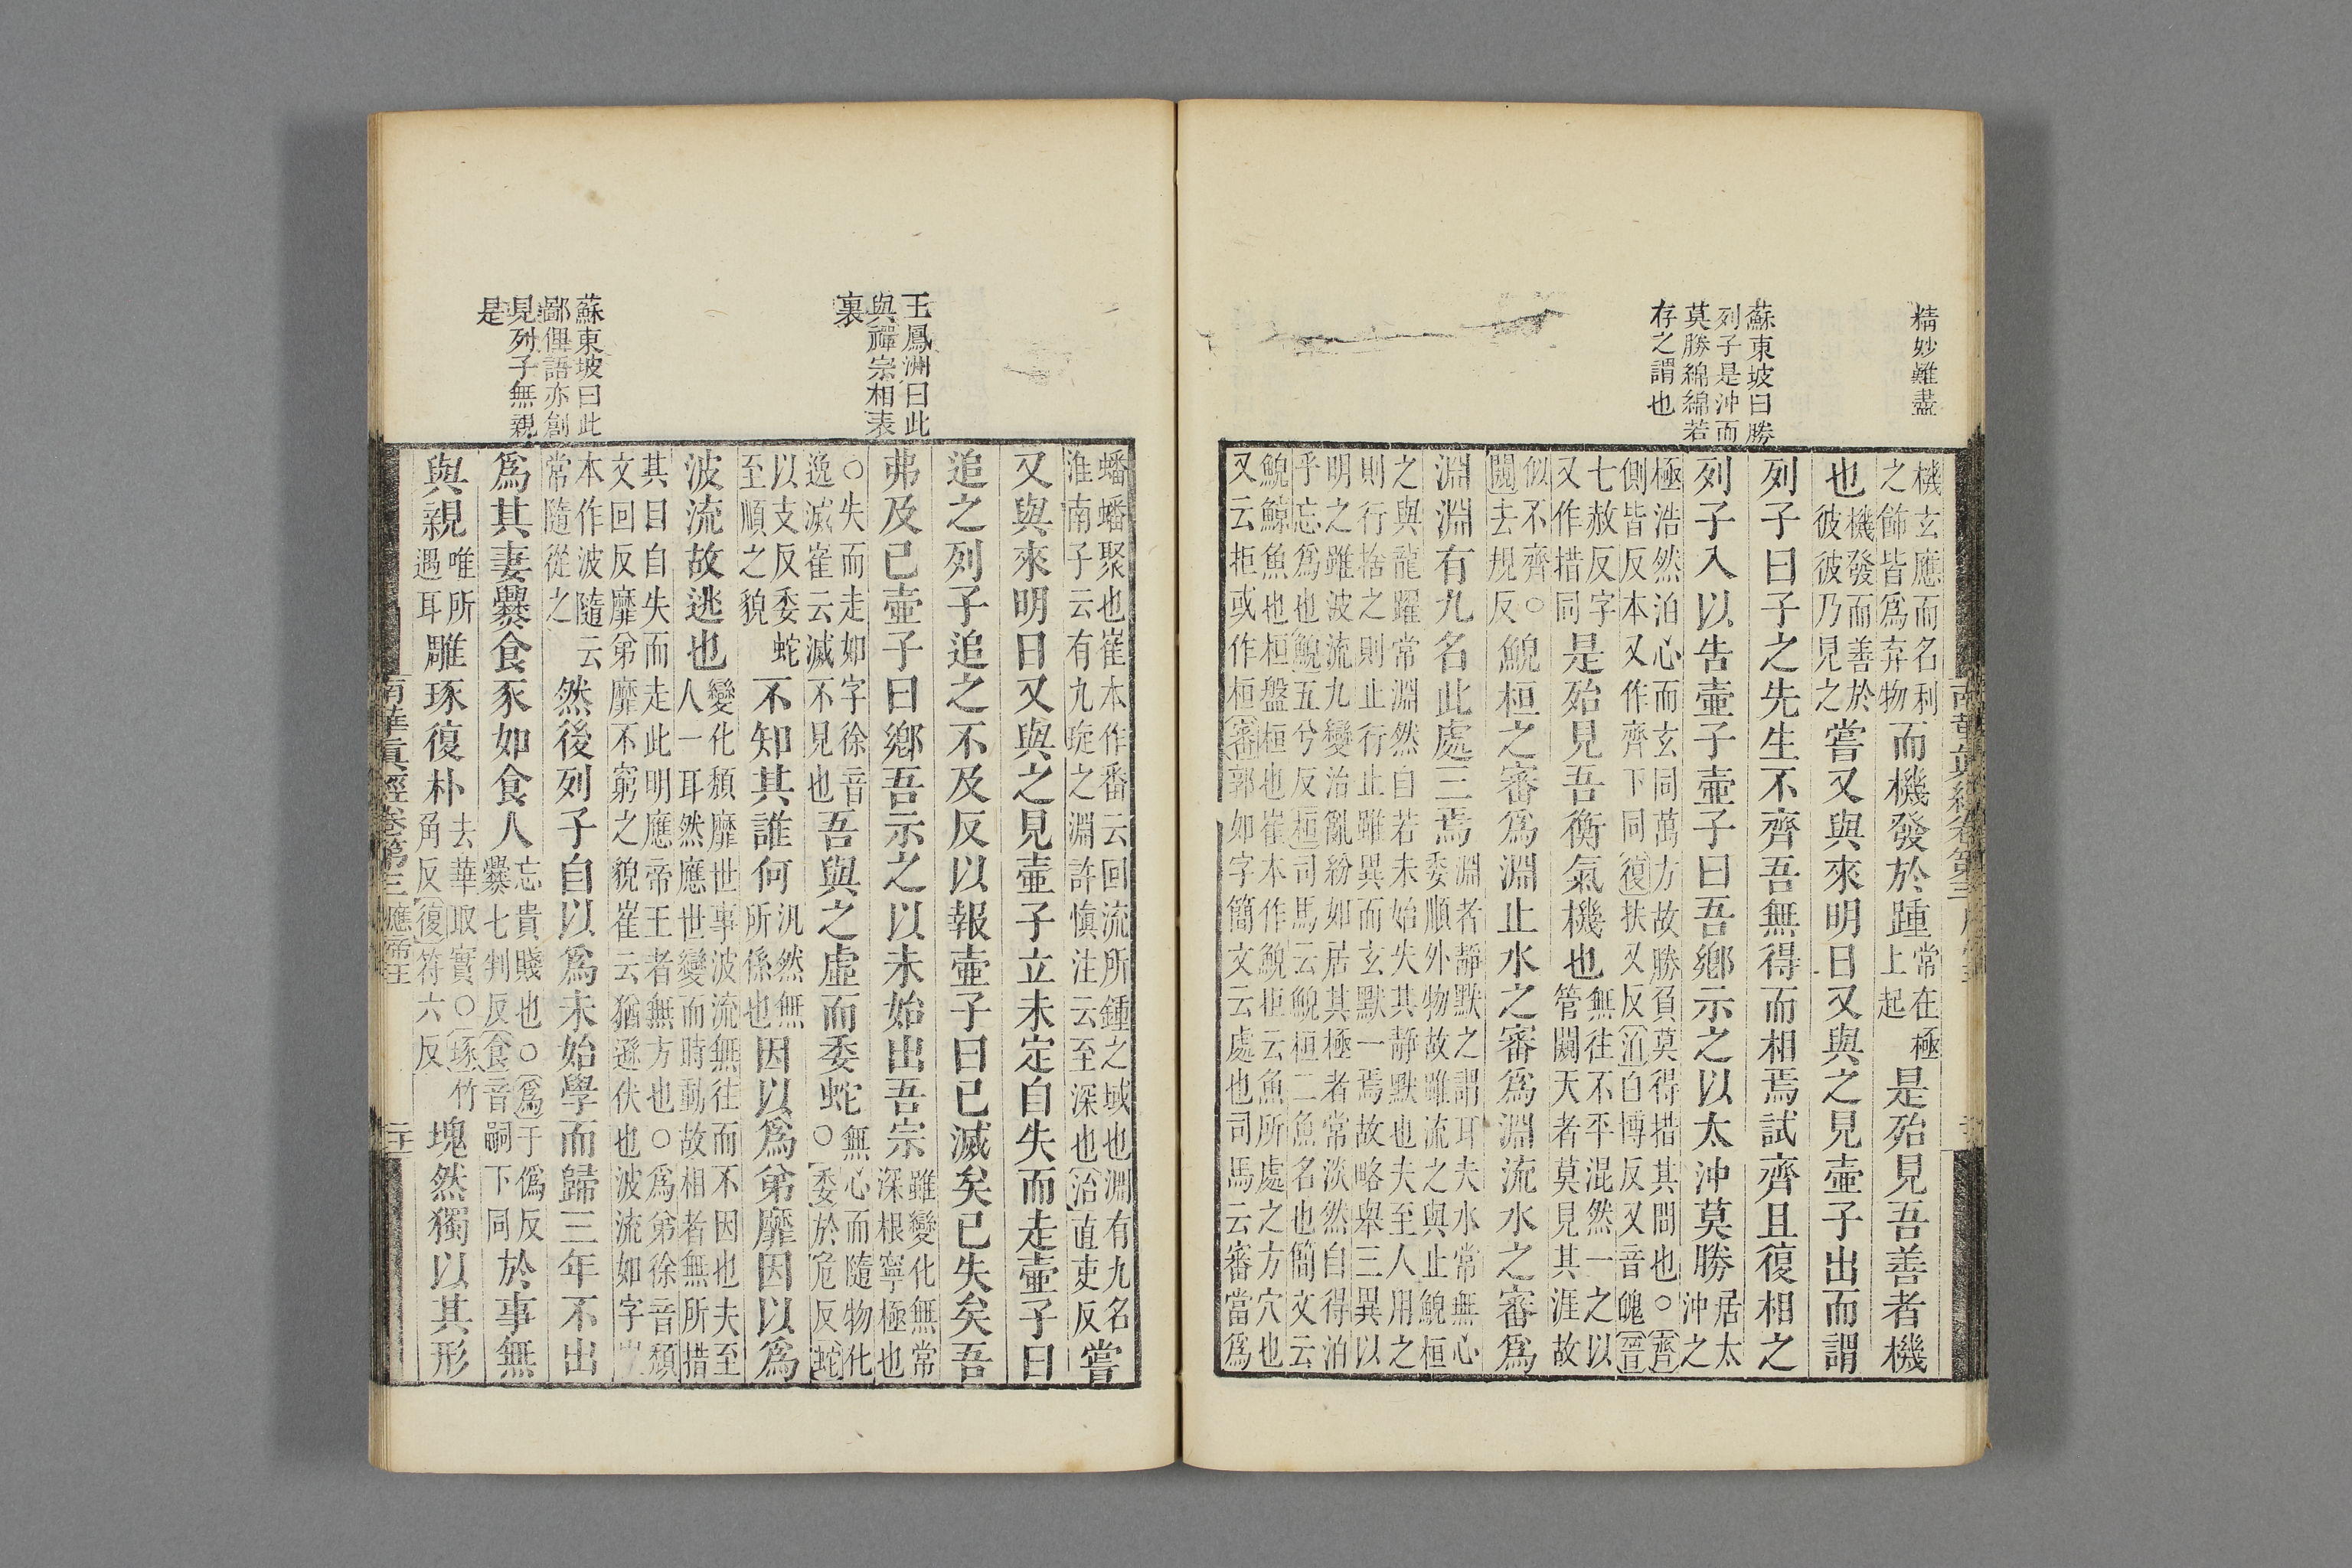 精妙難盡
蘇東坡曰勝
列子是沖而
莫勝綿綿若
存之謂也
機玄應而名利
之飾皆爲弃物
而機發於踵
常在極
上起
是殆見吾善者機
也
機發而善於
彼彼乃見之
嘗又與來明日又與之見壷子出而謂
列子曰子之先生不齊吾無得而相焉試齊且復相之
列子入以告壷子壷子曰吾鄉示之以太沖莫勝
居太
沖之
極浩然泊心而玄同萬方故勝負莫得措其間也○齊
側皆反本又作齊下同復扶又反泊白博反又音魄晉
七赦反字
又作措同
是殆見吾衡氣機也
無往不平混然一之以
管闚天者莫見其涯故
似不齊○
闚去規反
鯢桓之審爲淵止水之審爲淵流水之審爲
淵淵有九名此處三焉
淵者靜默之謂耳夫水常無心
委順外物故雖流之與止鯢桓
之與龍躍常淵然自若未始失其靜默也夫至人用之
則行捨之則止行止雖異而玄默一焉故略舉三異以
明之雖波流九變治亂紛如居其極者常淡然自得泊
乎忘爲也鯢五兮反桓司馬云鯢桓二魚名也簡文云
鯢鯨魚也桓盤桓也崔本作鯢拒云魚所處之方穴也
又云拒或作桓審郭如字簡文云處也司馬云審當爲
王鳳洲曰此
與禪宗相表
裏
蘇東坡曰此
鄙俚語亦創
見列子無親
是
蟠蟠聚也崔本作番云回流所鍾之域也淵有九名
淮南子云有九琁之淵許愼注云至深也治直吏反
嘗
又與來明日又與之見壷子立未定自失而走壷子曰
追之列子追之不及反以報壷子曰已滅矣已失矣吾
弗及已壷子曰鄉吾示之以未始出吾宗
雖變化無常
深根寧極也
○失而走如字徐音
逸滅崔云滅不見也
吾與之虛而委蛇
無心而隨物化
○委於危反蛇
以支反委蛇
至順之貌
不知其誰何
汎然無
所係也
因以爲弟靡因以爲
波流故逃也
變化頹靡世事波流無往而不因也夫至
人一耳然應世變而時動故相者無所措
其目自失而走此明應帝王者無方也○爲弟徐音頹
文回反靡弟靡不窮之貌崔云猶遜伏也波流如字
本作波隨云
常隨從之
然後列子自以爲未始學而歸三年不出
爲其妻爨食豕如食人
忘貴賤也○爲于僞反
爨七判反食音嗣下同
於事無
與親
唯所
遇耳
雕琢復朴
去華取實○琢竹
角反復符六反
塊然獨以其形
南華眞經卷第三 應帝王